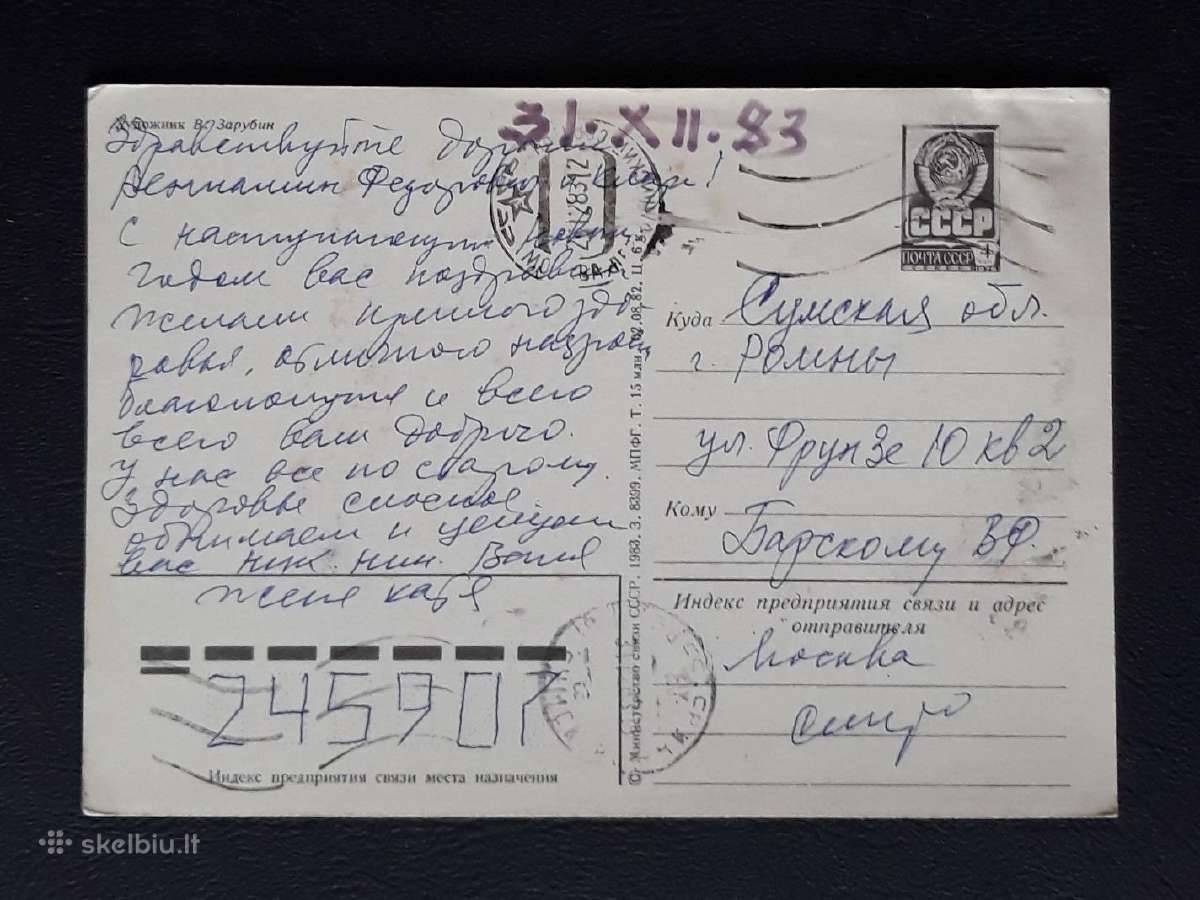 Художник В. Зарубин
31.XII.83
Здравствуйте дорогие
Вениамин Федорович и !
С наступающим новым
годом вас поздравляем
желаем крепкого здо
ровья, отличного настроен
благополучия и всего
всего вам доброго.
У нас все по старому.
Здоровье сносное
обнимаем и целуем
вас Ваня
Женя Катя
СССР
ПОЧТА СССР
4
1976
Куда Сумская обл.
г. Ромны
ул. Фрунзе 10 кв 2
Кому Барскому В.Ф.
Индекс предприятия связи и адрес
отправителя
Москва
245907
Индекс предприятия связи места назначения
© Министерство связи СССР. 1983. З. 8399. МПФГ. Т. 15 млн. 02.08.82. Ц. 6 к.
skelbiu.lt